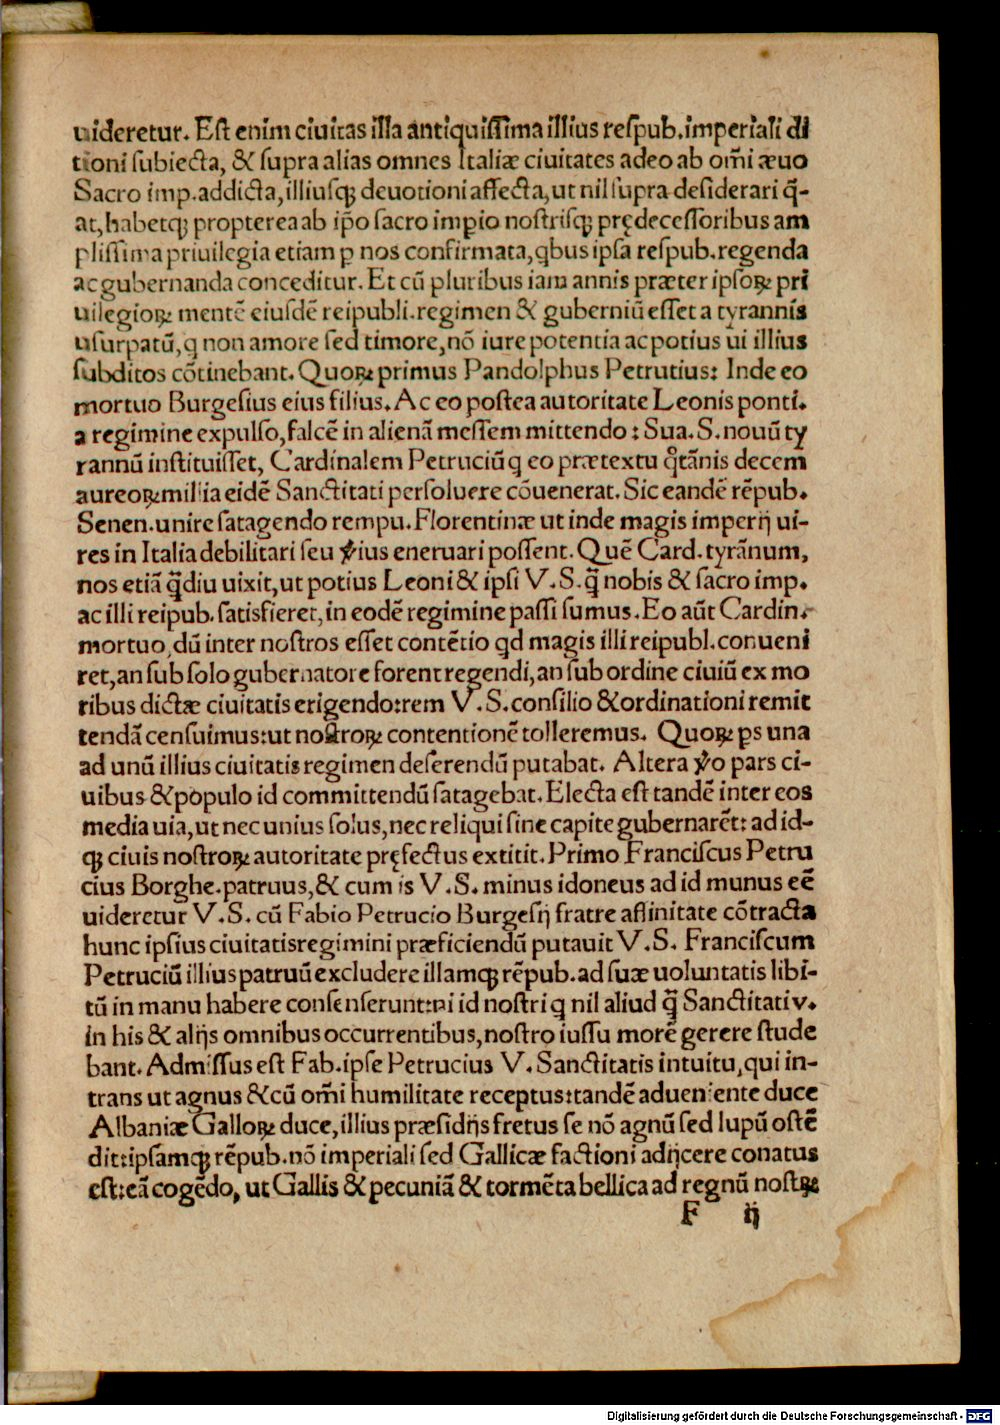 uideretur. Eſt enim ciuitas illa antiquiſſima illius reſpub.imperiali di
tioni ſubiecta, & ſupra alias omnes Italiæ ciuitates adeo ab om̃i æuo
Sacro imp.addicta,illiuſꝗ deuotioni affecta,ut nil ſupra deſiderari q̃-
at,habetꝗ propterea ab ip̃o ſacro impio noſtriſꝗ prędeceſſoribus am
pliſſima priuilegia etiam ꝑ nos confirmata,ꝗbus ipſa reſpub.regenda
ac gubernanda conceditur. Et cũ pluribus iam annis præter ipſoꝝ pri
uilegioꝝ mentē eiuſdē reipubli.regimen & guberniũ eſſet a tyrannis
uſurpatũ,ꝗ non amore ſed timore,nō iure potentia ac potius ui illius
ſubditos cōtinebant. Quoꝝ primus Pandolphus Petrutius: Inde eo
mortuo Burgeſius eius filius. Ac eo poſtea autoritate Leonis ponti.
a regimine expulſo,falcē in alienā meſſem mittendo : Sua. S. nouũ ty
rannũ inſtituiſſet, Cardinalem Petruciũ ꝗ eo prætextu ꝗtānis decem
aureoꝝ millia eidē Sanctitati perſoluere cōuenerat. Sic eandē rēpub.
Senen.unire ſatagendo rempu. Florentinæ ut inde magis imperij ui-
res in Italia debilitari ſeu v̕ius eneruari poſſent. Quē Card. tyrānum,
nos etiā ꝗ̃diu uixit,ut potius Leoni & ipſi V. S. ꝗ̃ nobis & ſacro imp.
ac illi reipub. ſatisfieret,in eodē regimine paſſi ſumus. Eo aũt Cardin.
mortuo,dũ inter noſtros eſſet contētio ꝗd magis illi reipubl. conueni
ret,an ſub ſolo gubernatore forent regendi,an ſub ordine ciuiũ ex mo
ribus dictæ ciuitatis erigendo:rem V. S. conſilio & ordinationi remit
tendā cenſuimus:ut noſtroꝝ contentionē tolleremus. Quoꝝ ꝑs una
ad unũ illius ciuitatis regimen deferendũ putabat. Altera v̕o pars ci-
uibus & populo id committendũ ſatagebat. Electa eſt tandē inter eos
media uia,ut nec unius ſolus,nec reliqui ſine capite gubernarēt: ad id-
ꝗ ciuis noſtroꝝ autoritate pręfectus extitit. Primo Franciſcus Petru
cius Borghe. patruus,& cum is V. S. minus idoneus ad id munus eē
uideretur V. S. cũ Fabio Petrucio Burgeſij fratre affinitate cōtracta
hunc ipſius ciuitatis regimini præficiendũ putauit V. S. Franciſcum
Petruciũ illius patruũ excludere illamꝗ rēpub. ad ſuæ uoluntatis libi-
tũ in manu habere conſenſerunt:ni id noſtri ꝗ nil aliud ꝗ̃ Sanctitati v.
in his & alijs omnibus occurrentibus,noſtro iuſſu morē gerere ſtude
bant. Admiſſus eſt Fab. ipſe Petrucius V. Sanctitatis intuitu,qui in-
trans ut agnus & cũ om̃i humilitate receptus:tandē adueniente duce
Albaniæ Galloꝝ duce,illius præſidijs fretus ſe nō agnũ ſed lupũ oſtē
dit:ipſamꝗ rēpub. nō imperiali ſed Gallicæ factioni adijcere conatus
eſt:eā cogēdo, ut Gallis & pecuniā & tormēta bellica ad regnũ noſtꝝ
F ij
Digitalisierung gefördert durch die Deutsche Forschungsgemeinschaft - DFG